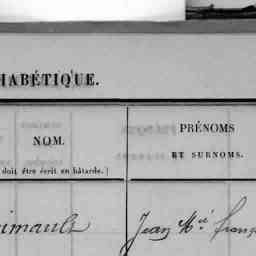 HABÉTIQUE.
NOM.
doit être écrit en bâtarde.)
PRÉNOMS
ET SURNOMS.
imault
Jean Mie franç